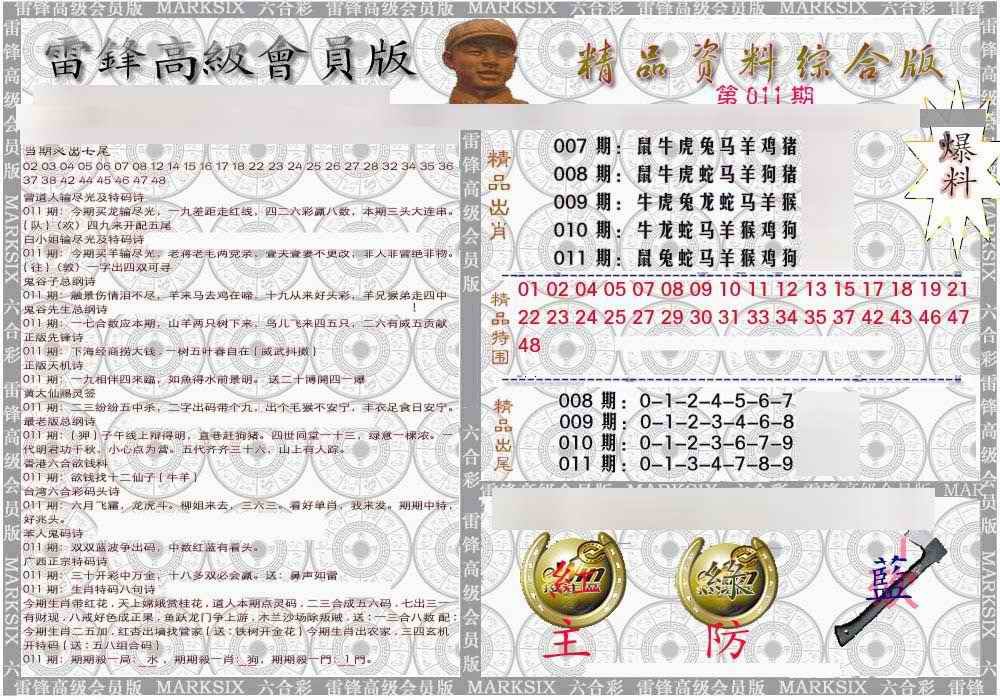 雷锋高级会员版 MARKSIX 六合彩 雷锋高级会员版 MARKSIX 六合彩 雷锋高级会员版 MARKSIX 六合彩 雷锋
雷鋒高級會員版
精品资料综合版
第 011 期
爆料
当期来出七尾
02 03 04 05 06 07 08 12 14 15 16 17 18 22 23 24 25 26 27 28 32 34 35 36
37 38 42 44 45 46 47 48
曾道人输尽光及特码诗
011 期：今期买龙输尽光，一九差距走红线，四二六彩赢八数，本期三头大连串。
{ 队 }（欢）四九来开配五尾
白小姐输尽光及特码诗
011 期：今期买羊输尽光，老蒋老毛两党亲，萱天萱妻不更改，非人非冒绝非物。
{ 往 }（敦）一字出四双可寻
鬼谷子总纲诗
011 期：融景伤情泪不尽，羊来马去鸡在啼，十九从来好头彩，羊兄猴弟走四中
鬼谷先生总纲诗
011 期：一七合数应本期，山羊两只树下来，鸟儿飞来四五只，二六有威五贡献
正版先锋诗
011 期：下海经商捞大钱，一树五叶春自在 { 威武抖擞 }
正版天机诗
011 期：一九相伴四来臨，如魚得水前景明。 送二十博開四一爆
黄大仙赐灵签
011 期：二三纷纷五中杀，二字出码带个九，出个毛猴不安宁，丰衣足食日安宁。
最老版总纲诗
011 期：{ 狎 } 子午线上辩得明，直巷赶狗猪。四世同堂一十三，绿意一棵浓。一
代明君功千秋，小心点为营。五代齐齐三十六，山上有人踪。
香港六合欲钱料
011 期：欲钱找十二仙子 { 牛羊 }
台湾六合彩码头诗
011 期：六月飞霜，龙虎斗。柳姐来去，三六三。看好单肖，我来发。期期中特，
好兆头。
本人鬼码诗
011 期：双双蓝波争出码，中数红蓝有看头。
广西正宗特码诗
011 期：三十开彩中万金，十八多双必会赢。送：鼻声如雷
011 期：生肖特码八句诗
今期生肖带红花，天上嫦娥赏桂花，道人本期点灵码，二三合成五六码，七出三一
有财现，八戒好色成正果，鱼跃龙门争上游，木兰沙场除叛贼，送：一三合八数 配：
今期生肖二五加，红杏出墙找管家 { 送：铁树开金花 } 今期生肖出农家，三四玄机
开特码 { 送：五八组合码 }
011 期：期期殺一局：水，期期殺一肖：狗，期期殺一門：1 門。
精品出肖
007 期：鼠牛虎兔马羊鸡猪
008 期：鼠牛虎蛇马羊狗猪
009 期：牛虎兔龙蛇马羊猴
010 期：牛龙蛇马羊猴鸡狗
011 期：鼠兔蛇马羊猴鸡狗
精品特围
01 02 04 05 07 08 09 10 11 12 13 15 17 18 19 21
22 23 24 25 27 29 30 31 33 34 35 37 42 43 46 47
48
精品出尾
008 期：0-1-2-4-5-6-7
009 期：0-1-2-3-4-6-8
010 期：0-1-2-3-6-7-9
011 期：0-1-3-4-7-8-9
紅
主
綠
防
藍
雷锋高级会员版 MARKSIX 六合彩 雷锋高级会员版 MARKSIX 六合彩 雷锋高级会员版 MARKSIX 六合彩 雷锋